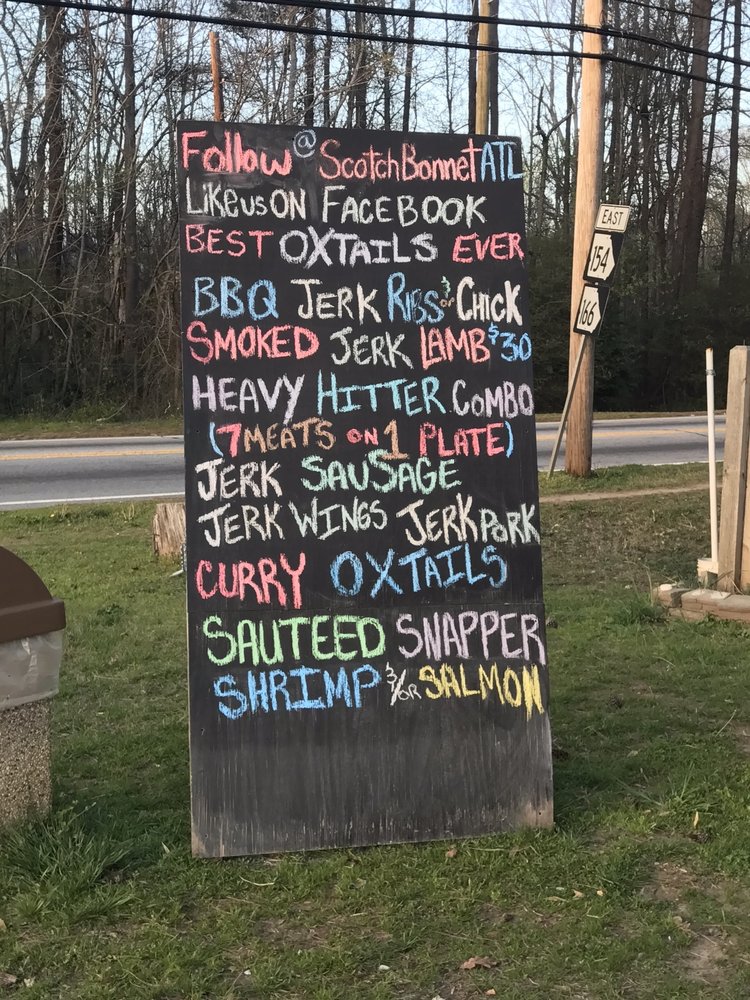 Follow @ ScotchBonnetATL
Like us ON FACEBOOK
BEST OXTAILS EVER
BBQ JERK RIBS & or CHICK
SMOKED JERK LAMB $30
HEAVY HITTER COMBO
(7 MEATS ON 1 PLATE)
JERK SAUSAGE
JERK WINGS JERK PORK
CURRY OXTAILS
SAUTEED SNAPPER
SHRIMP &/OR SALMON
EAST
154
166